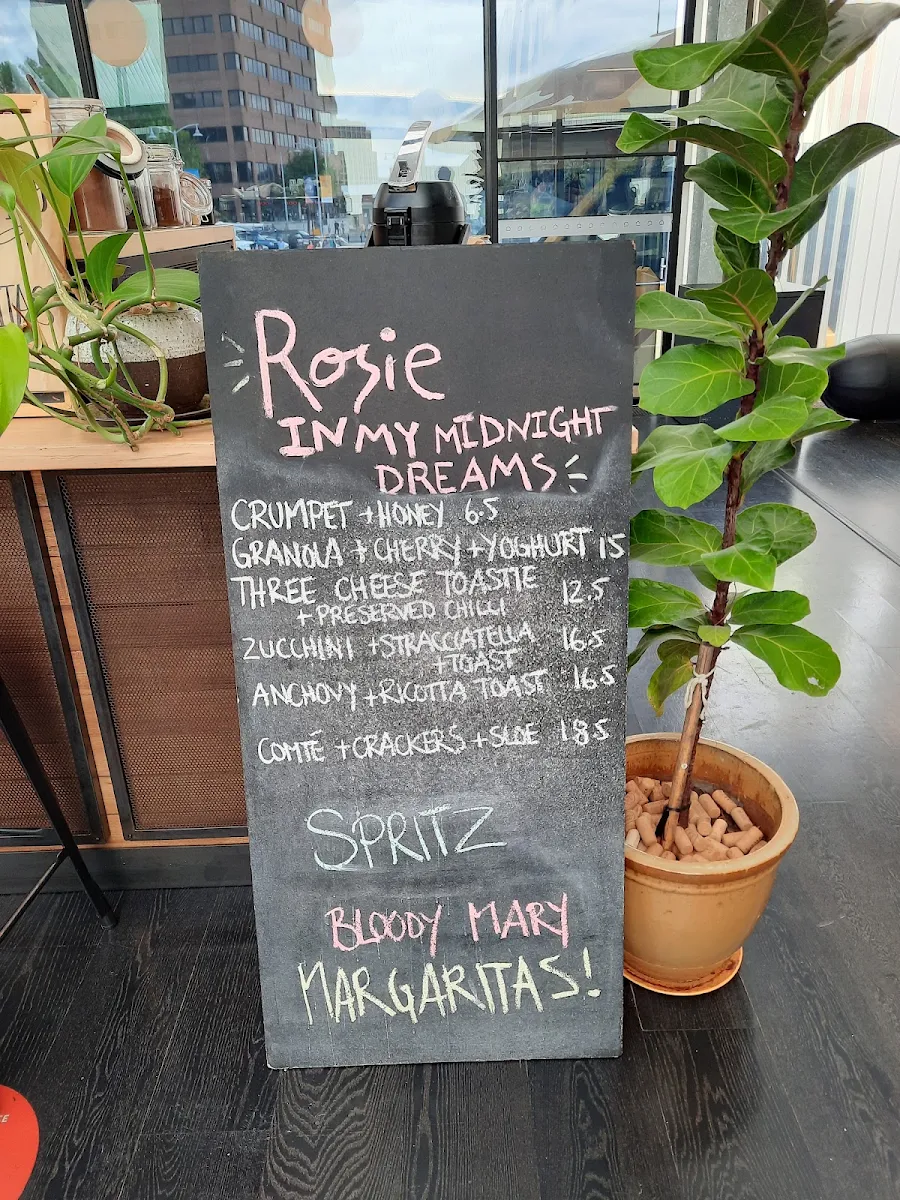 Rosie
IN MY MIDNIGHT
DREAMS
CRUMPET + HONEY 6.5
GRANOLA + CHERRY + YOGHURT 15
THREE CHEESE TOASTIE 12.5
+ PRESERVED CHILLI
ZUCCHINI + STRACCIATELLA 16.5
+ TOAST
ANCHOVY + RICOTTA TOAST 16.5
COMTÉ + CRACKERS + SLOE 18.5
SPRITZ
BLOODY MARY
MARGARITAS!